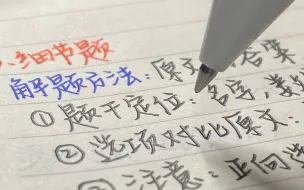 细节题
解题方法：原文 答案
①题干定位：名字，数
②选项对比原文：
③注意：正向